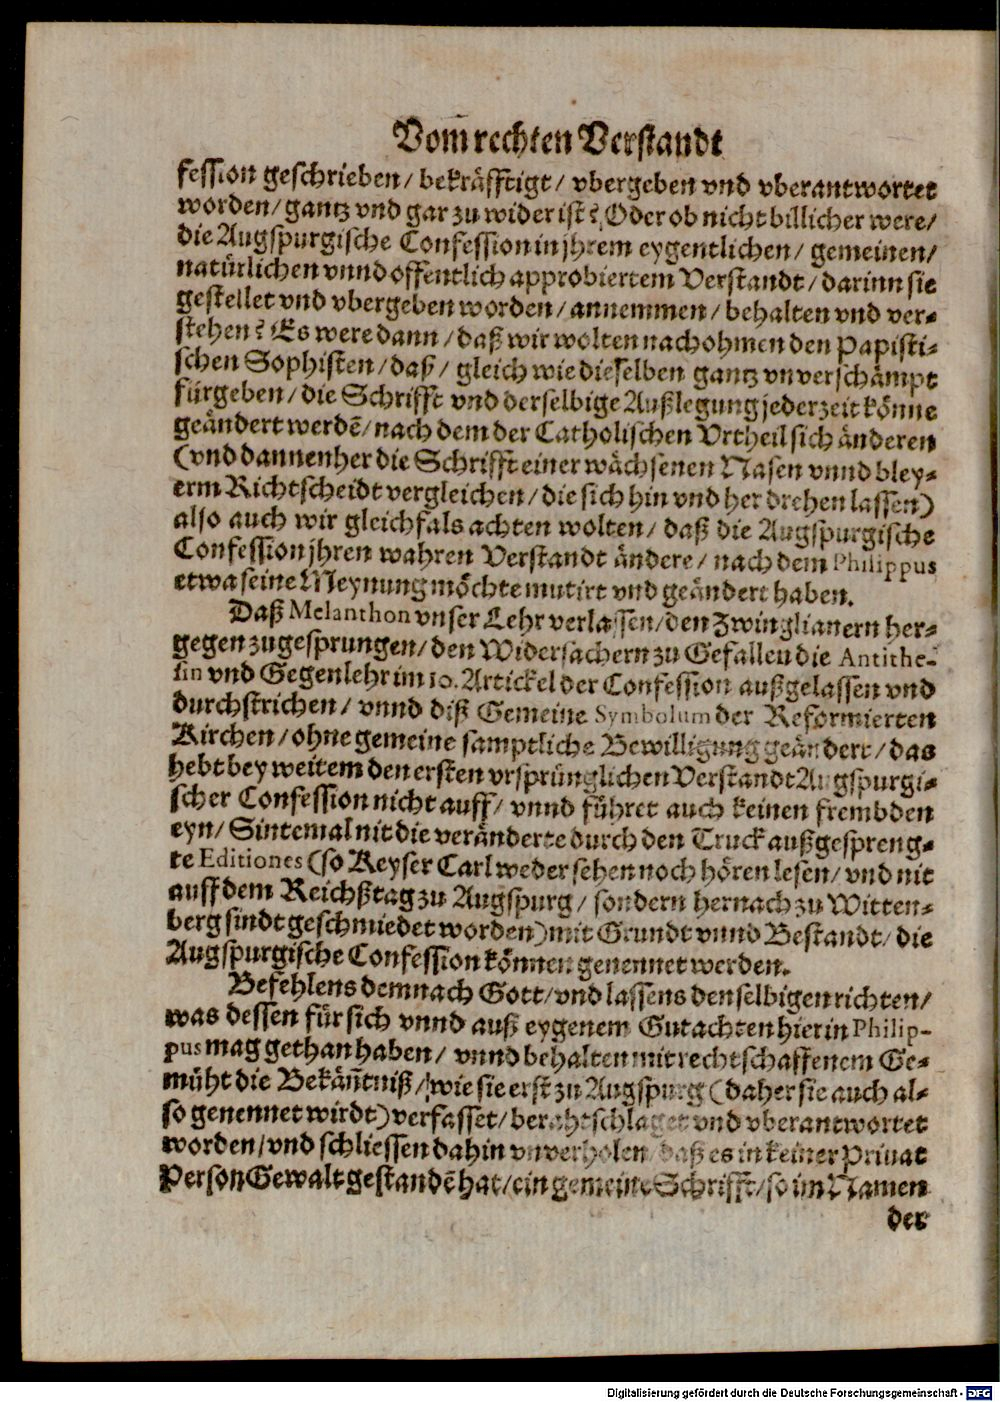 Vom rechten Verstandt
fession geschrieben/ bekräfftigt/ vbergeben vnd vberantwortet
worden/ gantz vnd gar zu wider ist? Oder ob nicht billicher were/
die Augspurgische Confession in jhrem eygentlichen/ gemeinen/
natürlichen vnnd offentlich approbiertem Verstandt/ darinn sie
gestellet vnd vbergeben worden/ annemmen/ behalten vnd ver-
stehen? Es were dann/ daß wir wolten nachohmen den Papisti-
schen Sophisten/ daß/ gleich wie dieselben gantz vnverschämpt
fürgeben/ die Schrifft vnd derselbige Außlegung jederzeit könne
geändert werdē/ nach dem der Catholischen Vrtheil sich änderen
(vnd dannenher die Schrifft einer wächsenen Nasen vnnd bley-
erm Richtscheidt vergleichen/ die sich hin vnd her drehen lassen)
also auch wir gleichfals achten wolten/ daß die Augspurgische
Confession jhren wahren Verstandt ändere/ nach dem Philippus
etwa seine Meynung möchte mutirt vnd geändert haben.
Daß Melanthon vnser Lehr verlassen/ den Zwinglianern her-
gegen zugesprungen/ den Widersachern zu Gefallen die Antithe-
sin vnd Gegenlehr im 10. Artickel der Confession außgelassen vnd
durchstrichen/ vnnd diß Gemeine Symbolum der Reformierten
Kirchen/ ohne gemeine samptliche Bewilligung geändert/ das
hebt bey weitem den ersten vrsprünglichen Verstandt Augspurgi-
scher Confession nicht auff/ vnnd führet auch keinen frembden
eyn/ Sintemal nit die veränderte durch den Truck außgespreng-
te Editiones (so Keyser Carl weder sehen noch hören lesen/ vnd nit
auff dem Reichßtag zu Augspurg/ sondern hernach zu Witten-
berg sindt geschmiedet worden) mit Grundt vnnd Bestandt/ die
Augspurgische Confession können genennet werden.
Befehlens demnach Gott/ vnd lassens denselbigen richten/
was dessen für sich vnnd auß eygenem Gutachten hierin Philip-
pus mag gethan haben/ vnnd behalten mit rechtschaffenem Ge-
müht die Bekäñtniß/ wie sie erst zu Augspurg (daher sie auch al-
so genennet wirdt) verfasset/ berahtschlaget vnd vberantwortet
worden/ vnd schliessen dahin vnverholen/ daß es in keiner Priuat
Person Gewalt gestandē hat/ ein gemeine Schrifft/ so im Namen
der
Digitalisierung gefördert durch die Deutsche Forschungsgemeinschaft - DFG